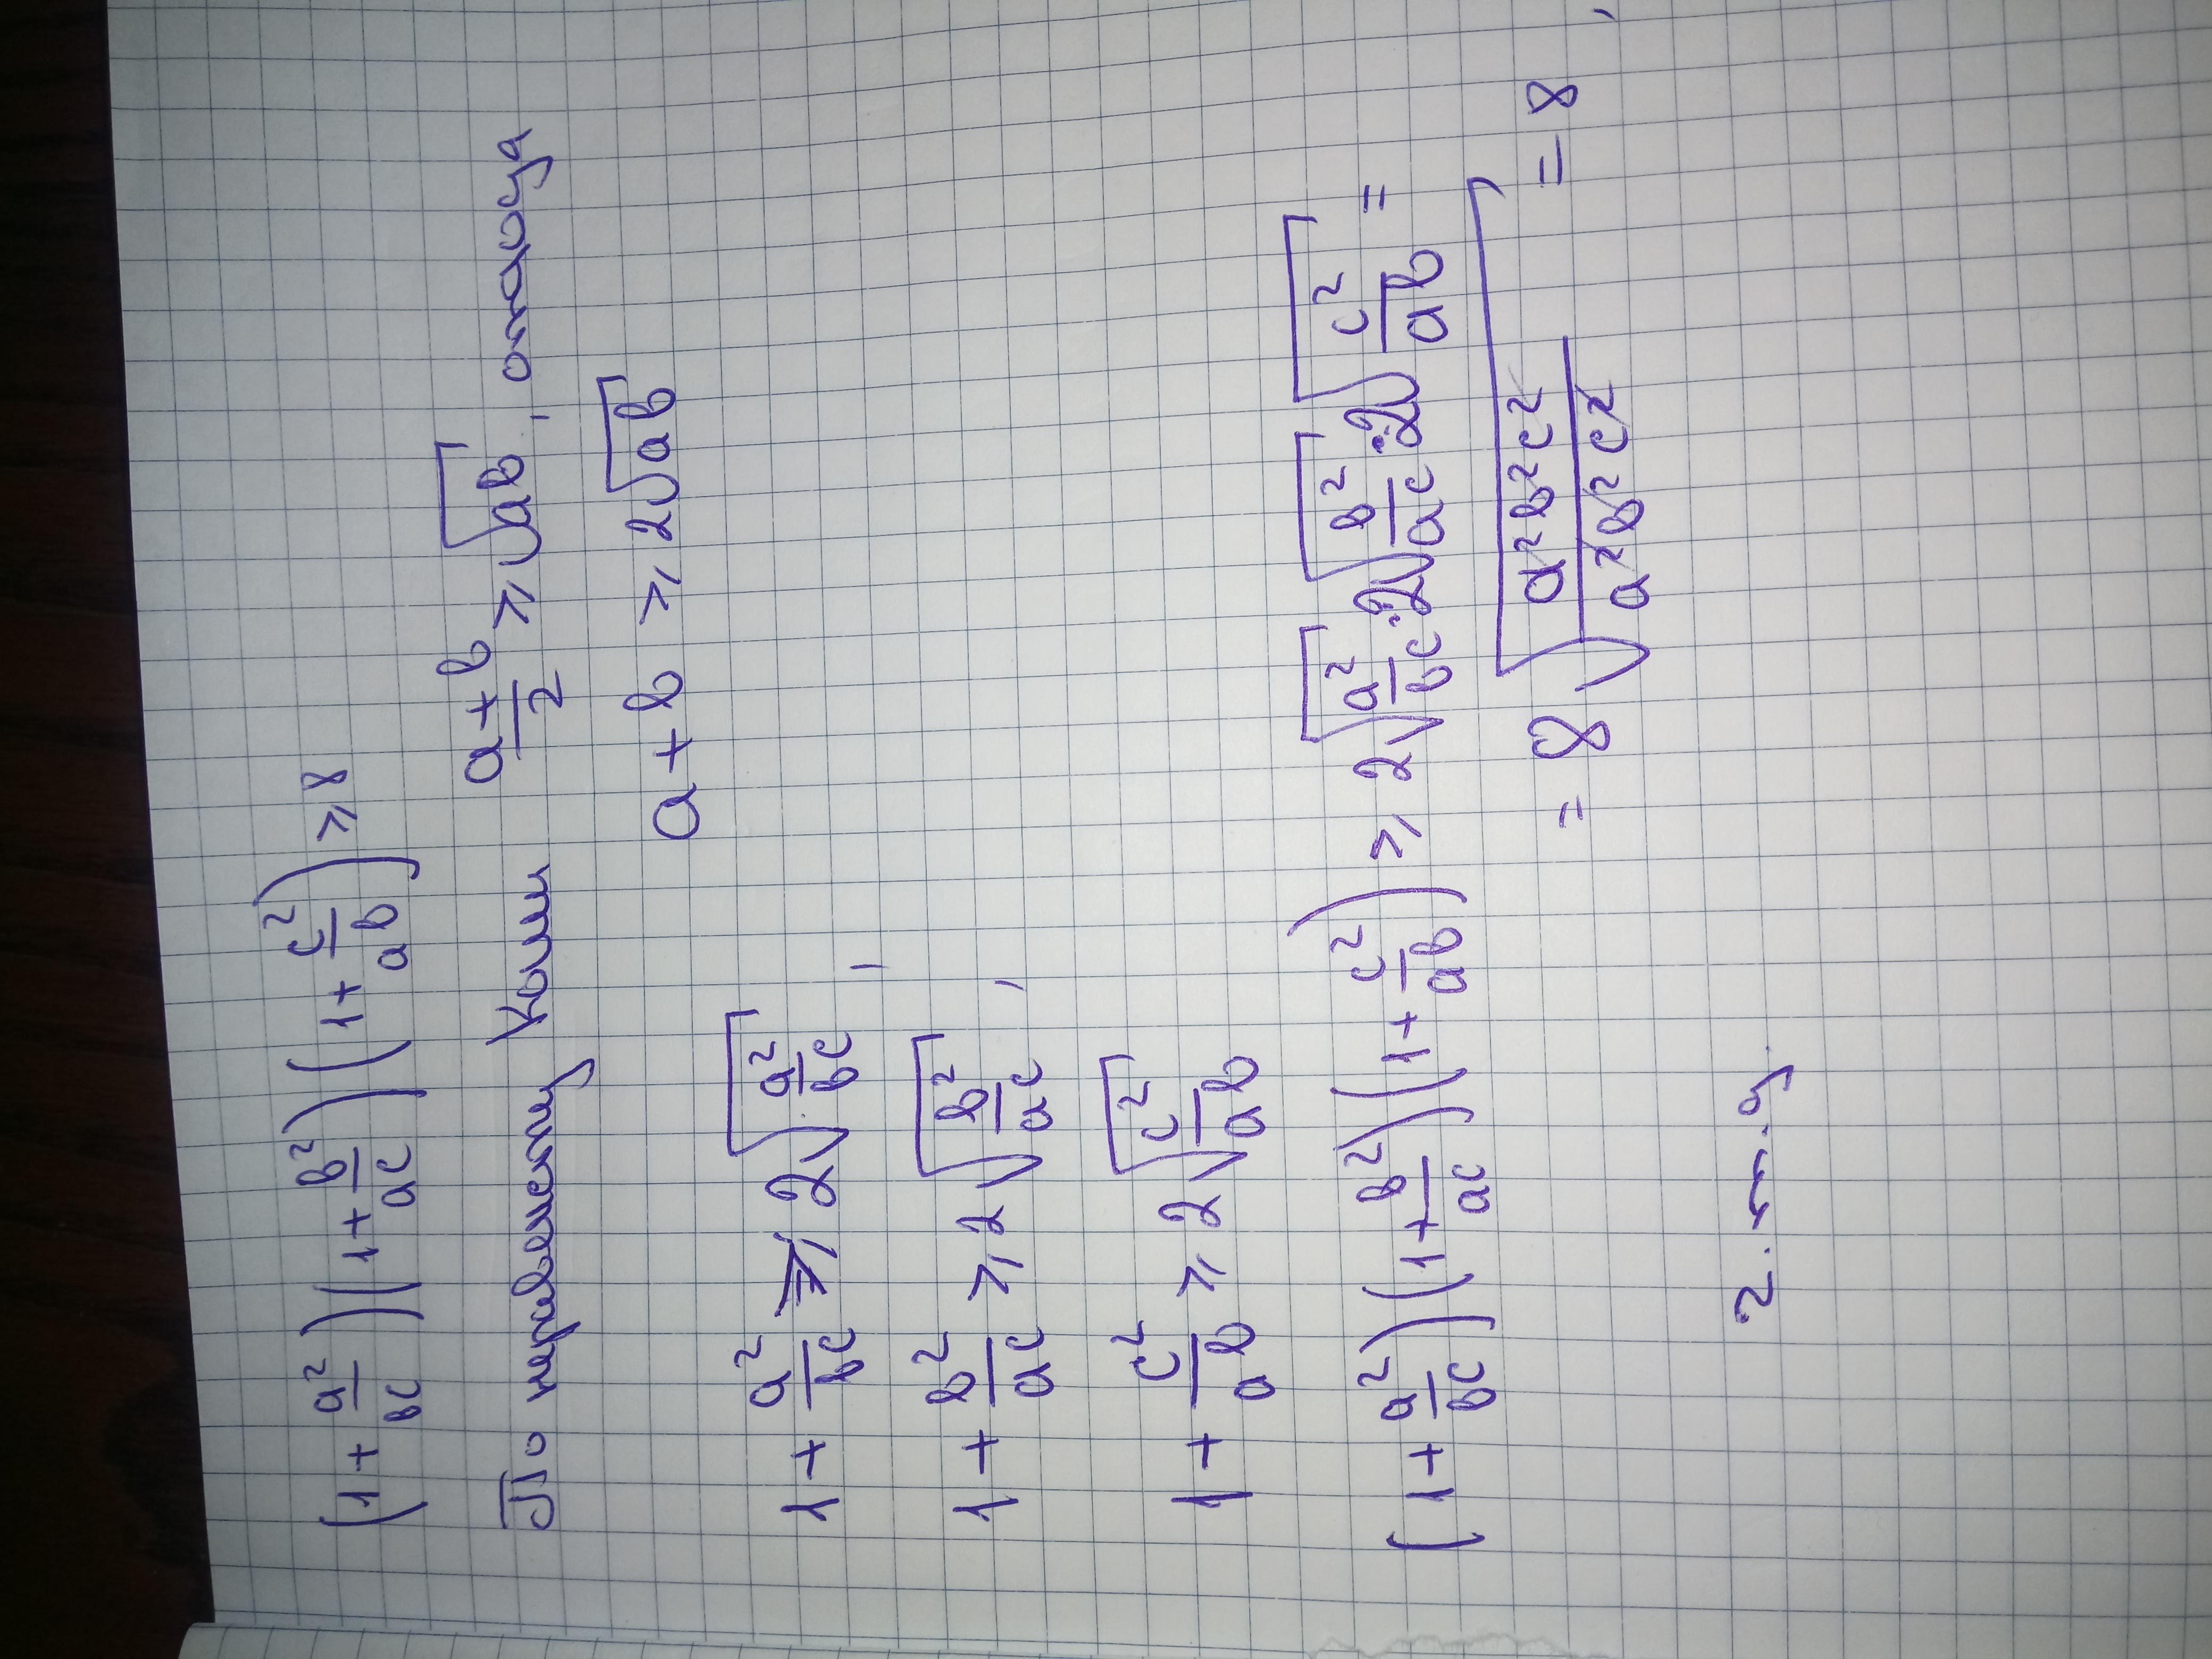 (1 + a²/bc)(1 + b²/ac)(1 + c²/ab) ≥ 8
По неравенству Коши a+b/2 ≥ √ab, откуда
a + b ≥ 2√ab
1 + a²/bc ≥ 2√a²/bc,
1 + b²/ac ≥ 2√b²/ac,
1 + c²/ab ≥ 2√c²/ab
(1 + a²/bc)(1 + b²/ac)(1 + c²/ab) ≥ 2√a²/bc · 2√b²/ac · 2√c²/ab =
= 8√a²b²c²/a²b²c² = 8,
г. т. д.